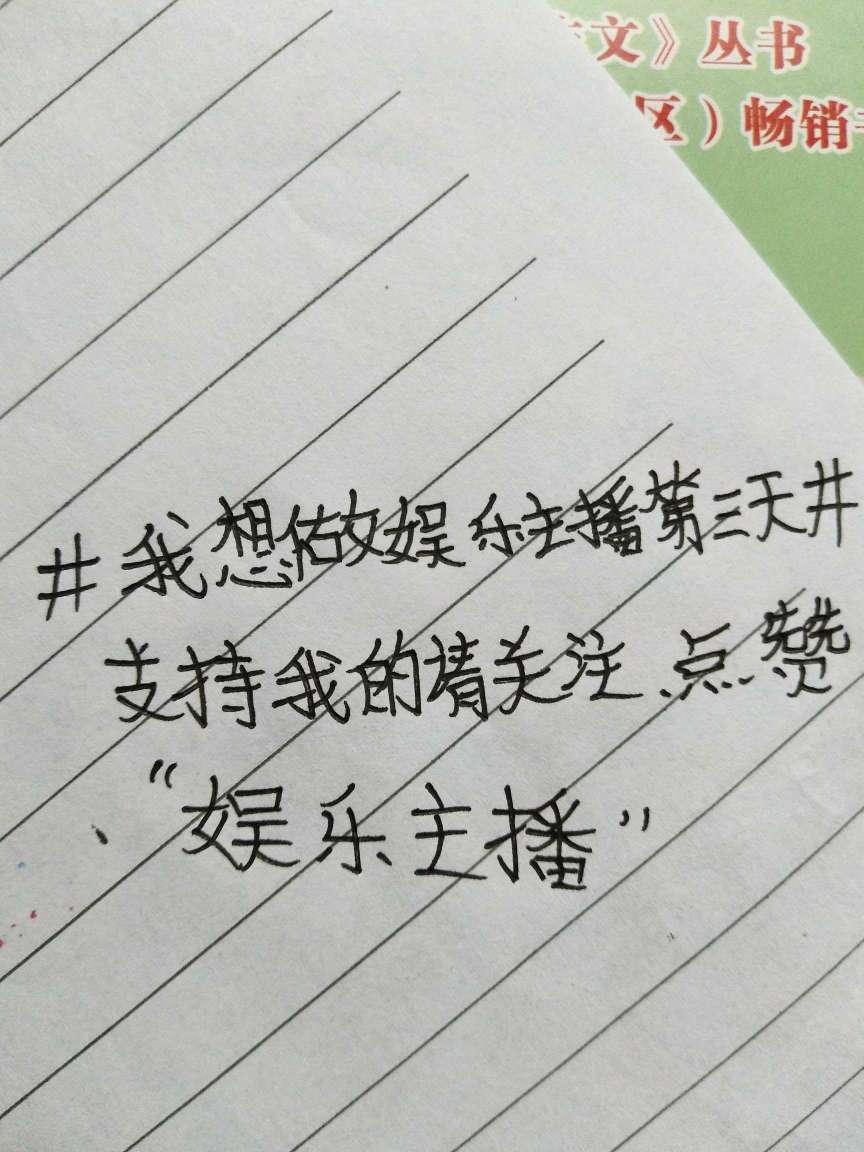 文》丛书
区）畅销
#我想做娱乐主播第三天#
支持我的请关注点赞
“娱乐主播”